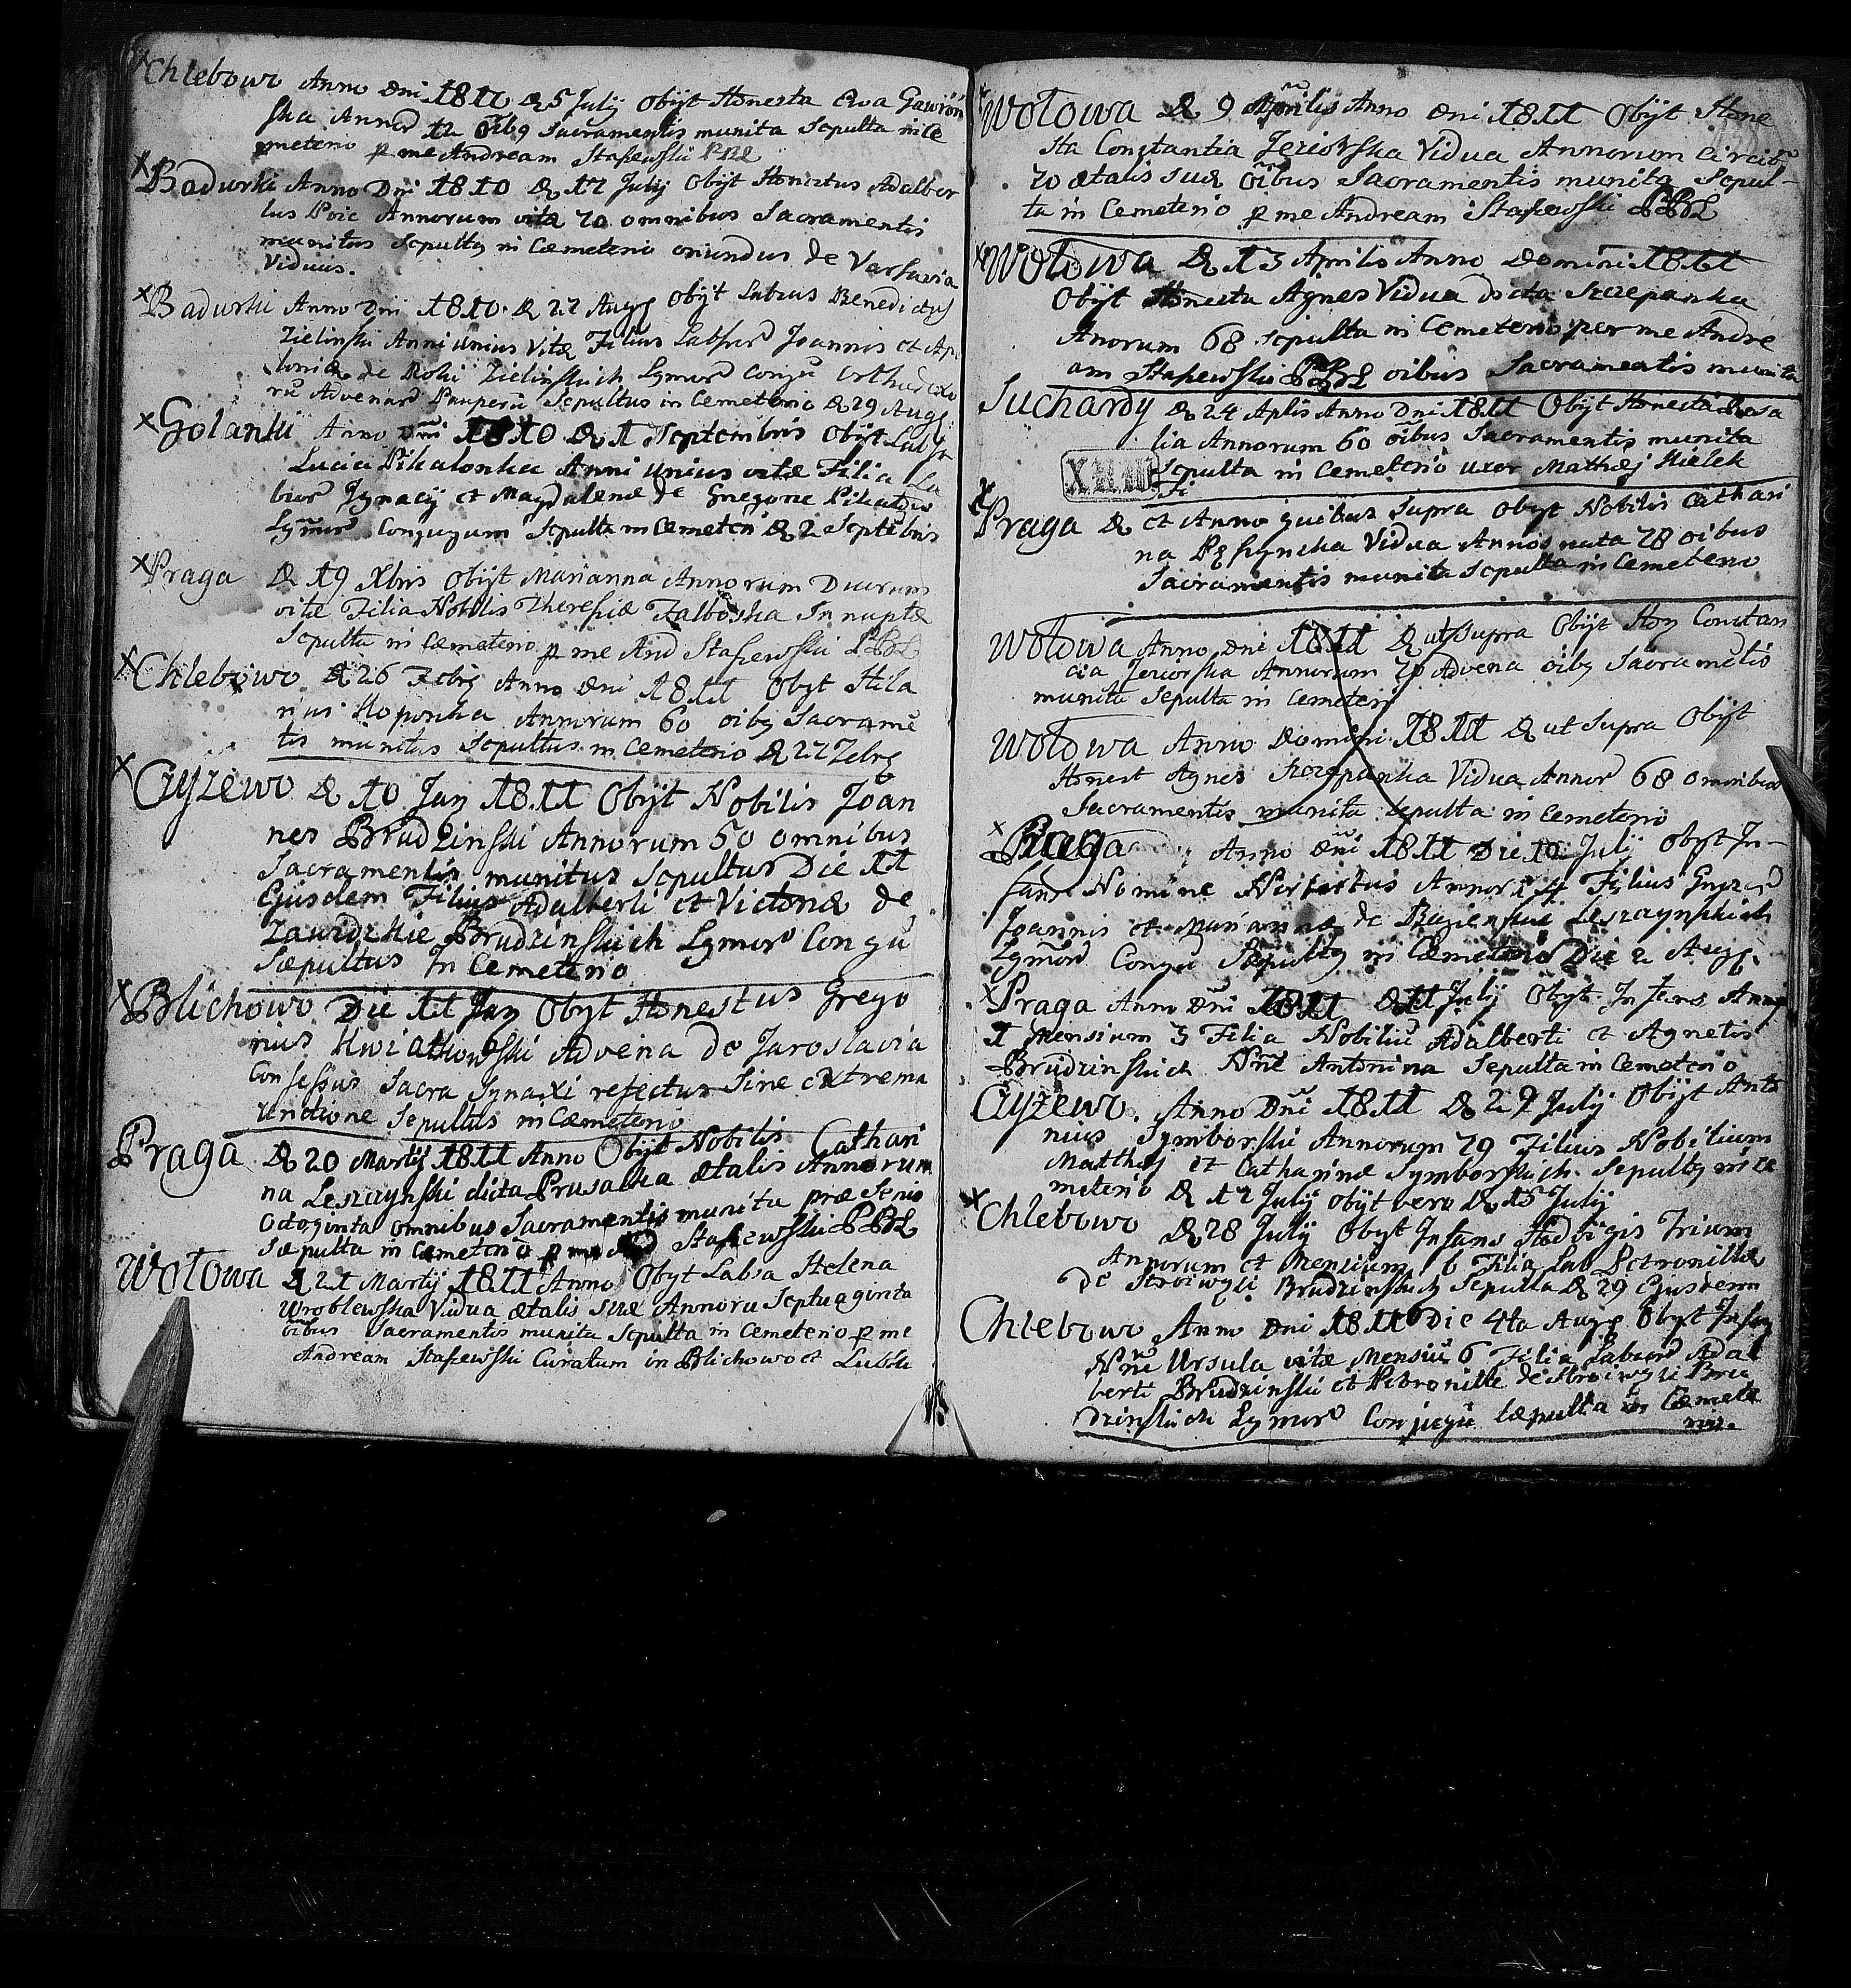 Chlebowo Anno Dni 1810 D 5 July Obyt Honesta Ewa Gawron
ska Annor 12 oibg Sacramentis munita Sepulta in Ce
meterio p me Andream Stasewski PBL
Badurki Anno Dni 1810 D 17 July Obyt Honestus Adalber
tus Annorum vitæ 70 omnibus Sacramentis
munitus Sepultg in Cæmeterio oriundus de Varsavia
Viduus.
Badurki Anno Dni 1810. D 27 Augg Obyt Benedictg
Zielinski Anni unius Vitæ Filius Labsor Joannis et Ap
de Zielinskich Lgmor Conju
rū Advenaro Pauperū Sepultus in Cemeterio D 29 Augg
Golanki Anno Dni 1810 D 1 Septembris Obyt
Lucia Anni unius vitæ Filia La
bior Jgnacij et Magdalenæ de
Lgmor Conjugum Sepulta in Cemeteri D 2 Septebris
Praga D 19 Xbris Obyt Marianna Annorum Duorum
vitæ Filia Nobilis Theresiæ Innuptæ
Sepulta in Cæmeterio p me And Stasewski PBL
Chlebowo D 26 Febrg Anno Dni 1811 Obyt Hila
rius Annorum 60 oibg Sacrame
tis munitus Sepultus in Cemeterio D 27 Febrg
Cyzewo D 10 Jan 1811 Obyt Nobilis Joan
nes Brudzinski Annorum 50 omnibus
Sacramentis munitus Sepultus Die 11
Ejusdem Filius Adalberti et Victoriæ de
Zawidzkie Brudzinskich Lgmoro Conju
Sæpultus In Cemeterio
Blichowo Die 11 Jan Obyt Honestus Grego
rius Kwiatkowski Advena de Jaroslavia
Confessus Sacra Synaxi refectus Sine extrema
Unctione Sepultus in Cæmeterio
Praga D 20 Martij 1811 Anno Obyt Nobilis Cathari
na Leszczynski dicta Prusaska ætatis Annorum
Octoginta omnibus Sacramentis munita præ Senio
Sæpulta in Cæmeterio p me Stasewski PBL
Wolowa D 21 Martij 1811 Anno Obyt Labsa Helena
Wroblewska Vidua ætatis suæ Annoru Septuaginta
oibus Sacramentis munita Sepulta in Cemeterio p me
Andream Stasewski Curatum in Blichowo et
Wolowa D 9 Aprilis Anno Dni 1811 Obyt Hone
sta Constantia Jeziorska Vidua Annorum Circit
70 ætatis suæ oibus Sacramentis munita Sepul-
ta in Cemeterio p me Andream Stasewski PBL
Wolowa D 13 Aprilis Anno Domini 1811
Obyt Honesta Agnes Vidua dicta Szczepanka
Anorum 68 Sepulta in Cemeterio per me Andre
am Stasewski PBL oibus Sacramentis munita
Suchardy D 24 Aplis Anno Dni 1811 Obyt Honesta Rosa
lia Annorum 60 oibus Sacramentis munita
Sepulta in Cemeterio uxor Mathej Kielek
X.H.10
Praga D et Anno quibus Supra Obyt Nobilis Cathari
na Vidua Annos nata 78 oibus
Sacramentis munita Sepulta in Cemeterio
Wolowa Anno Dni 1811 D ut Supra Obyt Hon Constan
cia Jeziorska Annorum 70 Advena oibg Sacrametis
munita Sepulta in Cemeteri
Wolowa Anno Domini 1811 D ut Supra Obyt
Honest Agnes Szczepanka Vidua Annor 68 omnibus
Sacramentis munita Sepulta in Cemeterio
Praga Anno Dni 1811 Die 10 July Obyt In-
fans Nomine Norbertus 4 Filius
Joannis et Mariannæ de Leszczynskich
Lgmoro Conju Sepultg in Cæmeterio Die 2 Augg.
Praga Anno Dni 1811 D 11 July Obyt Infans
1 Mensium 3 Filia Nobiliū Adalberti et Agnetis
Brudzinskich Nne Antonina Sepulta in Cemeterio
Cyzewo. Anno Dni 1811 D 27 July Obyt Anto
nius Symborski Annorum 79 Filius Nobilium
Matthej et Catharinæ Symborskich. Sepultg in Ce
meterio D 17 July obyt vero D 15 July
Chlebowo D 28 July Obyt Infans Hedvigis Trium
Annorum et Mensium 6 Filia Lab Petronillæ
de Brudzinskich Sepulta D 29 Ejusdem
Chlebowo Anno Dni 1811 Die 4ta Augg Obyt Infans
Nne Ursula vitæ Mensiū 6 Filia Laboro Adal
berti Brudzinski et Petronille de Bru
dzinskich Lgmoro Conjugū Sæpulta in Cæmete
rio.